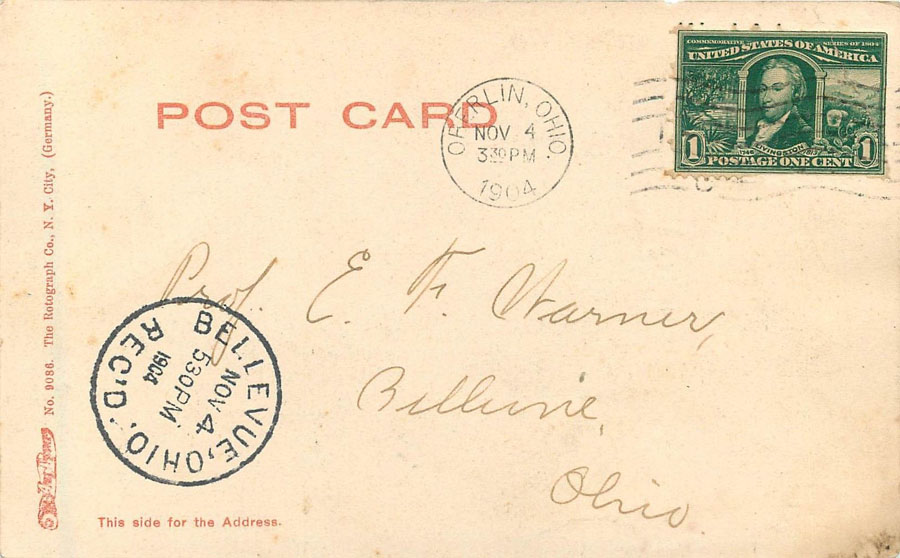 POST CARD
OBERLIN, OHIO.
NOV 4
330 PM
1904
COMMEMORATIVE SERIES OF 1904
UNITED STATES OF AMERICA
LIVINGSTON
1 POSTAGE ONE CENT 1
Prof. E. F. Warner,
Bellevue,
Ohio
BELLEVUE, OHIO,
NOV 4
530 PM
1904
REC'D.
No. 9086. The Rotograph Co., N. Y. City, (Germany.)
This side for the Address.